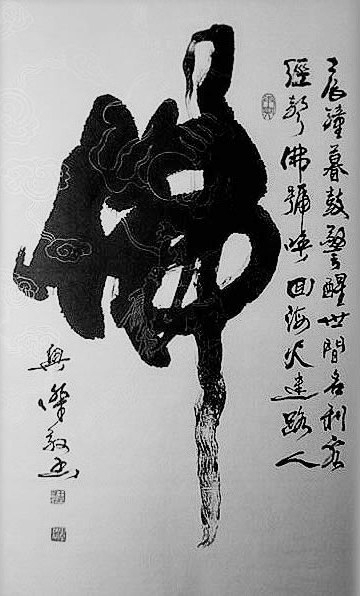 晨鐘暮鼓警醒世間名利客
經聲佛號喚回海火迷路人
佛
敬書